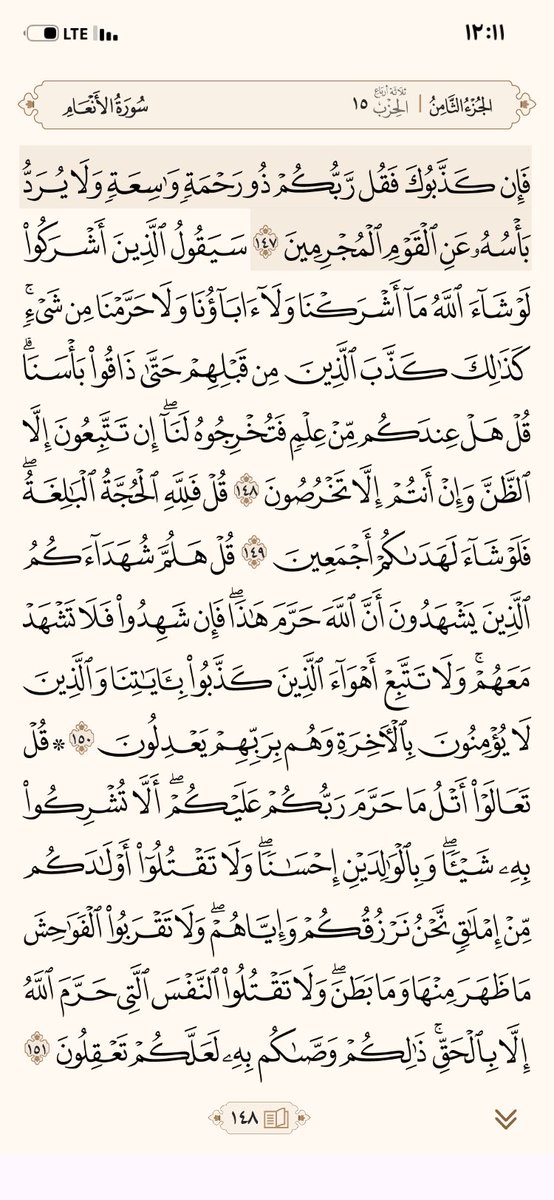 LTE ١٢:١١
سُورَةُ الأَنۡعَامِ الحِزۡب ١٥ ثلاثة أرباع | الجُزۡءُ الثَّامِنُ
فَإِن كَذَّبُوكَ فَقُل رَّبُّكُمۡ ذُو رَحۡمَةٖ وَٰسِعَةٖ وَلَا يُرَدُّ
بَأۡسُهُۥ عَنِ ٱلۡقَوۡمِ ٱلۡمُجۡرِمِينَ ١٤٧ سَيَقُولُ ٱلَّذِينَ أَشۡرَكُواْ
لَوۡ شَآءَ ٱللَّهُ مَآ أَشۡرَكۡنَا وَلَآ ءَابَآؤُنَا وَلَا حَرَّمۡنَا مِن شَيۡءٖۚ
كَذَٰلِكَ كَذَّبَ ٱلَّذِينَ مِن قَبۡلِهِمۡ حَتَّىٰ ذَاقُواْ بَأۡسَنَاۗ
قُلۡ هَلۡ عِندَكُم مِّنۡ عِلۡمٖ فَتُخۡرِجُوهُ لَنَآۖ إِن تَتَّبِعُونَ إِلَّا
ٱلظَّنَّ وَإِنۡ أَنتُمۡ إِلَّا تَخۡرُصُونَ ١٤٨ قُلۡ فَلِلَّهِ ٱلۡحُجَّةُ ٱلۡبَٰلِغَةُۖ
فَلَوۡ شَآءَ لَهَدَىٰكُمۡ أَجۡمَعِينَ ١٤٩ قُلۡ هَلُمَّ شُهَدَآءَكُمُ
ٱلَّذِينَ يَشۡهَدُونَ أَنَّ ٱللَّهَ حَرَّمَ هَٰذَاۖ فَإِن شَهِدُواْ فَلَا تَشۡهَدۡ
مَعَهُمۡۚ وَلَا تَتَّبِعۡ أَهۡوَآءَ ٱلَّذِينَ كَذَّبُواْ بِـَٔايَٰتِنَا وَٱلَّذِينَ
لَا يُؤۡمِنُونَ بِٱلۡأٓخِرَةِ وَهُم بِرَبِّهِمۡ يَعۡدِلُونَ ١٥٠ * قُلۡ
تَعَالَوۡاْ أَتۡلُ مَا حَرَّمَ رَبُّكُمۡ عَلَيۡكُمۡۖ أَلَّا تُشۡرِكُواْ
بِهِۦ شَيۡـٔٗاۖ وَبِٱلۡوَٰلِدَيۡنِ إِحۡسَٰنٗاۖ وَلَا تَقۡتُلُوٓاْ أَوۡلَٰدَكُم
مِّنۡ إِمۡلَٰقٖ نَّحۡنُ نَرۡزُقُكُمۡ وَإِيَّاهُمۡۖ وَلَا تَقۡرَبُواْ ٱلۡفَوَٰحِشَ
مَا ظَهَرَ مِنۡهَا وَمَا بَطَنَۖ وَلَا تَقۡتُلُواْ ٱلنَّفۡسَ ٱلَّتِي حَرَّمَ ٱللَّهُ
إِلَّا بِٱلۡحَقِّۚ ذَٰلِكُمۡ وَصَّىٰكُم بِهِۦ لَعَلَّكُمۡ تَعۡقِلُونَ ١٥١
١٤٨